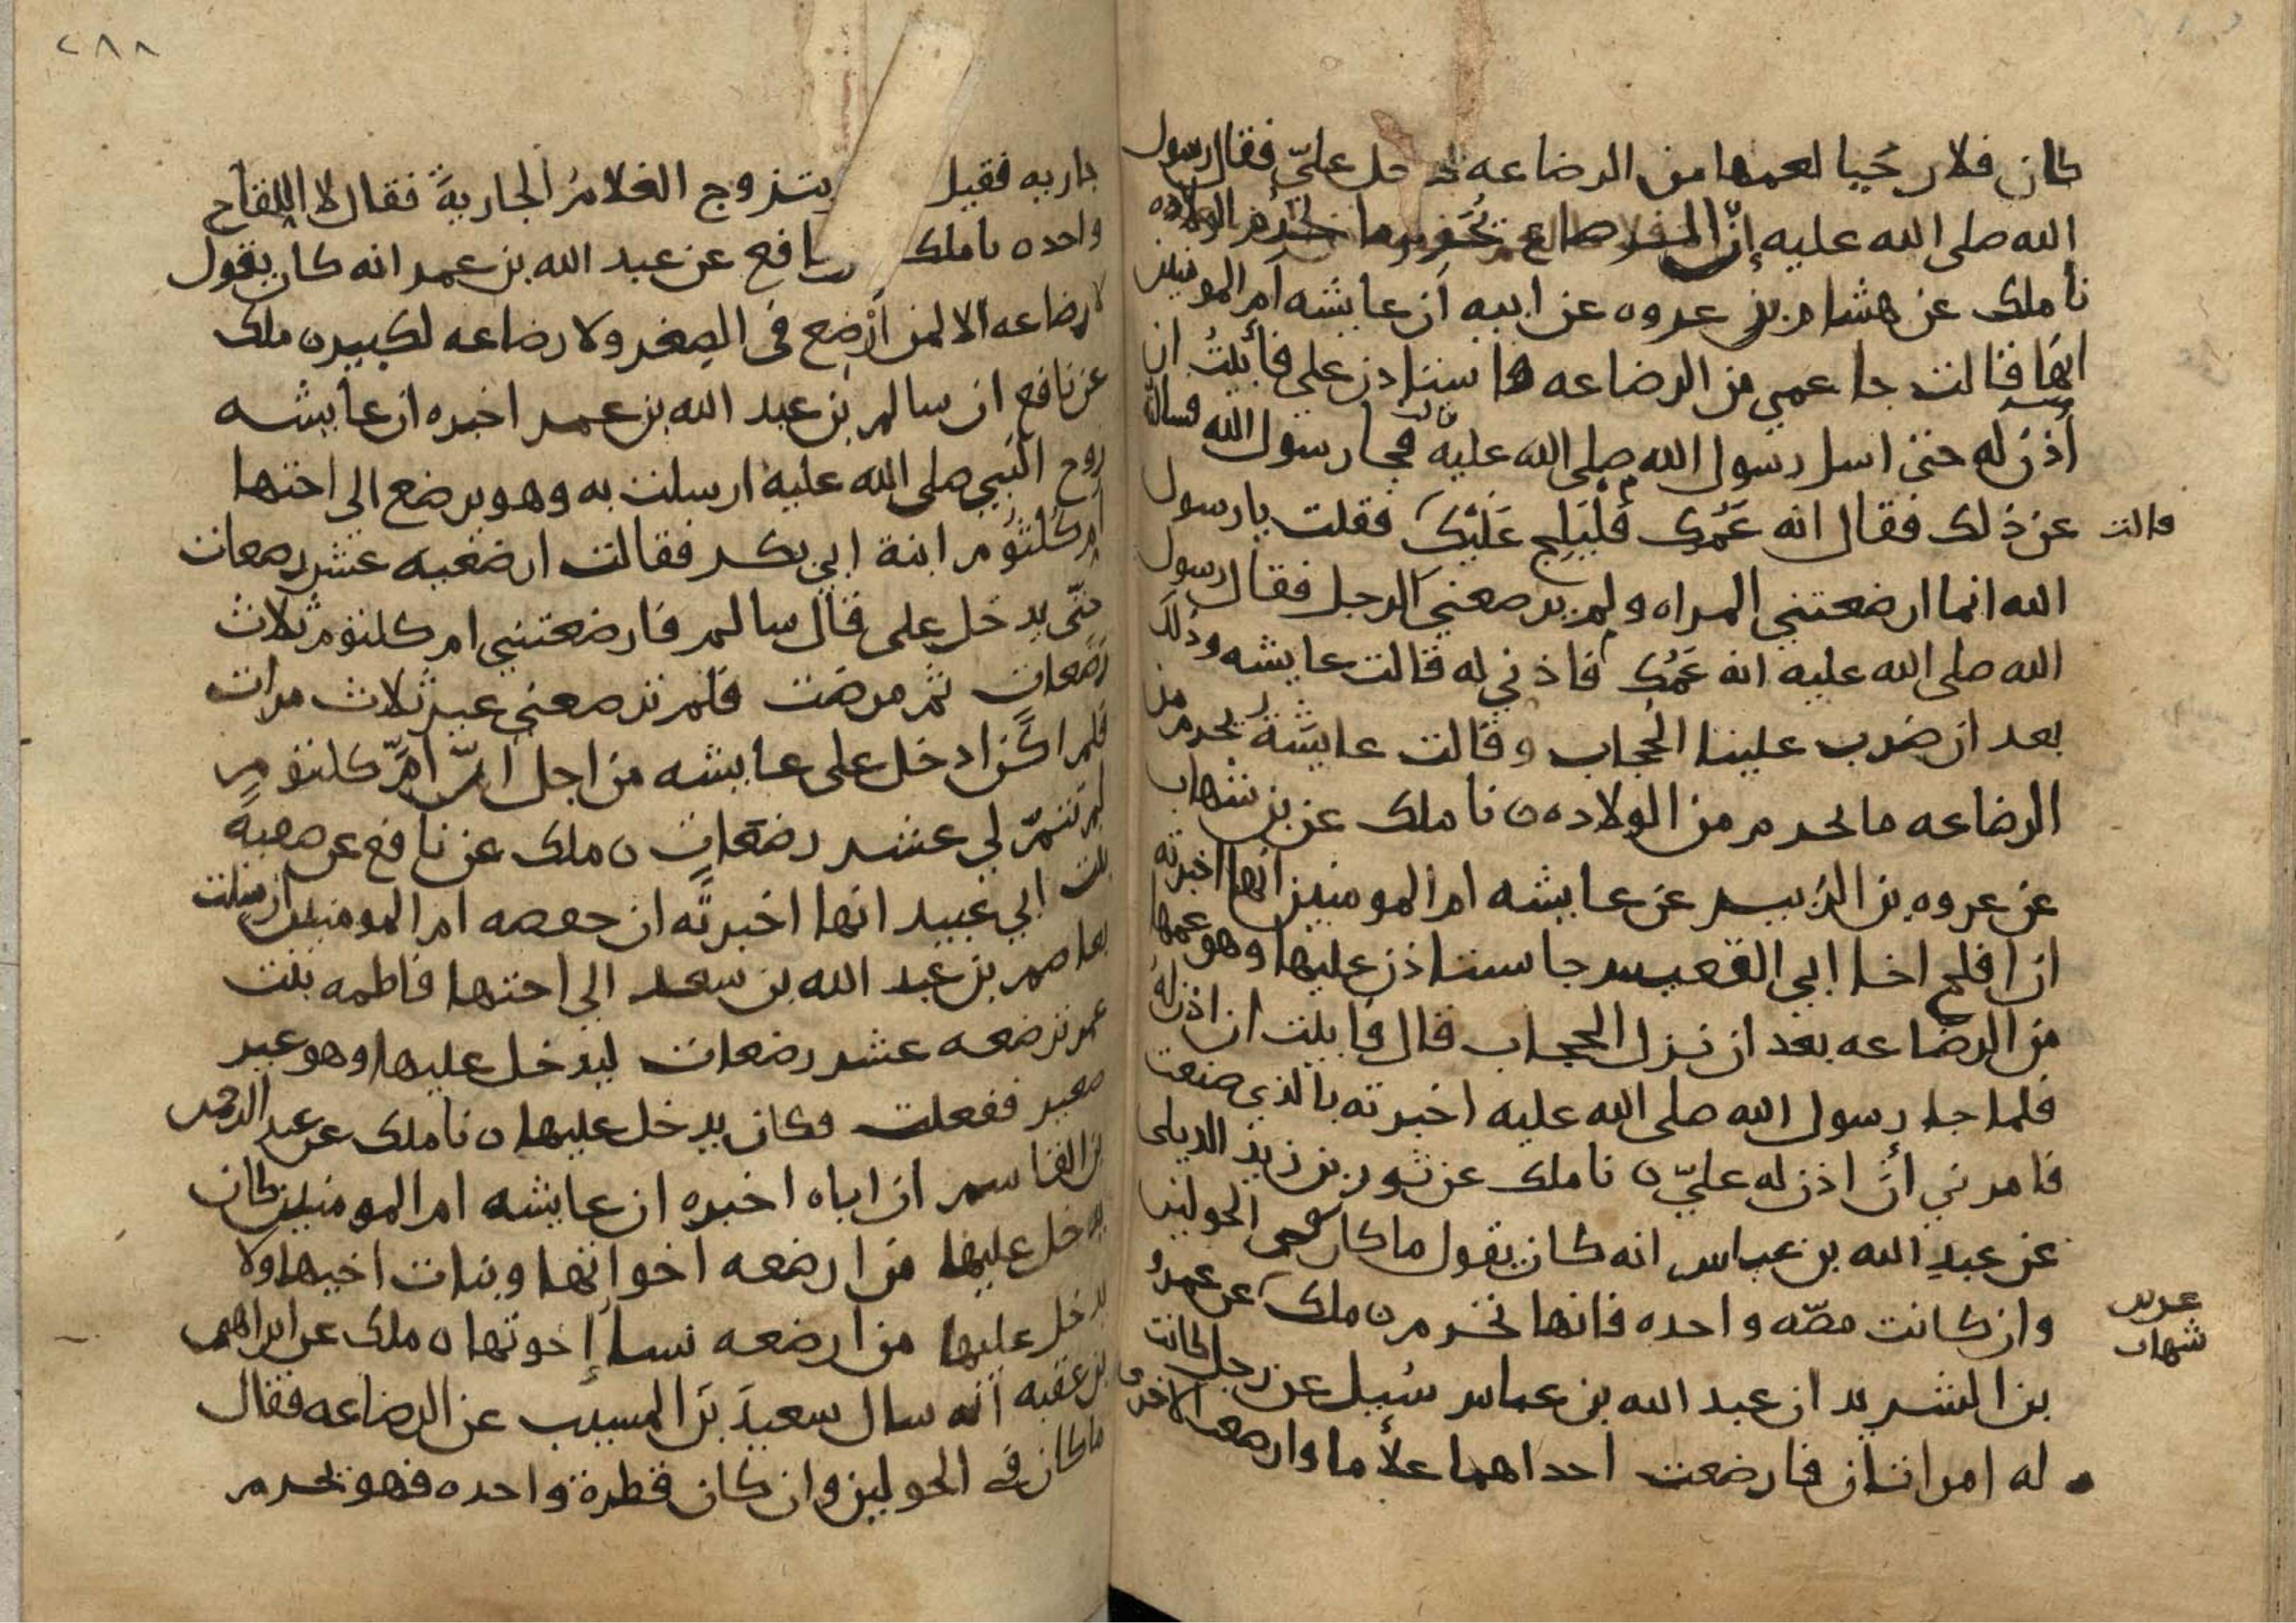 كان فلان حيا لعمها من الرضاعه دخل عليّ فقال رسول
الله صلى الله عليه إنّ الرضاع تحرم ما تحرم الولاده
نا ملك عن هشام بن عروه عن ابيه أن عايشه ام المومنين
انها قالت جا عمي من الرضاعه يستاذن علي فأبيتُ ان
أذن له حتى اسل رسول الله صلى الله عليه قالت فجا رسول الله فسالته
قالت
عن ذلك فقال انه عَمُّكِ فليلج عَلَيْكِ فقلت يا رسول
الله انما ارضعتني المراه ولم يرضعني الرجل فقال رسول
الله صلى الله عليه انه عَمُّكِ فاذني له قالت عايشه وذلك
بعد ان ضرب علينا الحجاب وقالت عايشةُ يحرم من
الرضاعه ما يحرم من الولاده ن نا ملك عن بن شهاب
عن عروه بن الزبير عن عايشه ام المومنين انها اخبرته
ان افلح اخا ابي القعيس جا يستاذن عليها وهو عمها
من الرضاعه بعد ان نزل الحجاب قال فابيت ان اذن له
فلما جا رسول الله صلى الله عليه اخبرته بالذي صنعت
فامرني أنْ اذن له عليّ ن نا ملك عن ثور بن زيد الديلي
عن عبد الله بن عباس انه كان يقول ما كان في الحولين
وان كانت مصّه واحده فانها تحرم ن ملك عن عمرو
عن بن
شهاب
بن الشريد ان عبد الله بن عباس سُيل عن رجل كانت
له امراتان فارضعت احداهما غلاما وارضعت الاخرى
٢٨٨
جاريه فقيل يتزوج الغلامُ الجاريةَ فقال لا اللقاح
واحده نا ملك نافع عن عبد الله بن عمر انه كان يقول
لا رضاعه الا لمن أُرضع في الصغر ولا رضاعه لكبير ن ملك
عن نافع ان سالم بن عبد الله بن عمر اخبره ان عايشه
زوج النبي صلى الله عليه ارسلت به وهو يرضع الى اختها
ام كُلثُوم ابنة ابي بكر فقالت ارضعيه عشر رضعات
حتّى يدخل علي قال سالم فارضعتني ام كلثوم ثلاث
رَضَعاتٍ ثم مرضت فلم ترضعني غير ثلاث مرات
فلم اكن ادخل على عايشه من اجل انّ امّ كلثوم
لم تتمّ لي عشر رضعات ن ملك عن نافع عن صفية
بنت ابي عبيد انها اخبرته ان حفصه ام المومنين ارسلت
بعاصم بن عبد الله بن سعد الى اختها فاطمه بنت
عمر ترضعه عشر رضعات ليدخل عليها وهو صغير
صغير ففعلت فكان يدخل عليها ن نا ملك عن عبد الرحمن
بن القاسم ان اباه اخبره ان عايشه ام المومنين كان
يدخل عليها من ارضعه اخواتها وبنات اخيها ولا
يدخل عليها من ارضعه نسا إخوتها ن ملك عن ابراهيم
بن عقبه أنه سال سعيدَ بن المسيب عن الرضاعه فقال
ما كان في الحولين وان كان قطرة واحده فهو يحرم